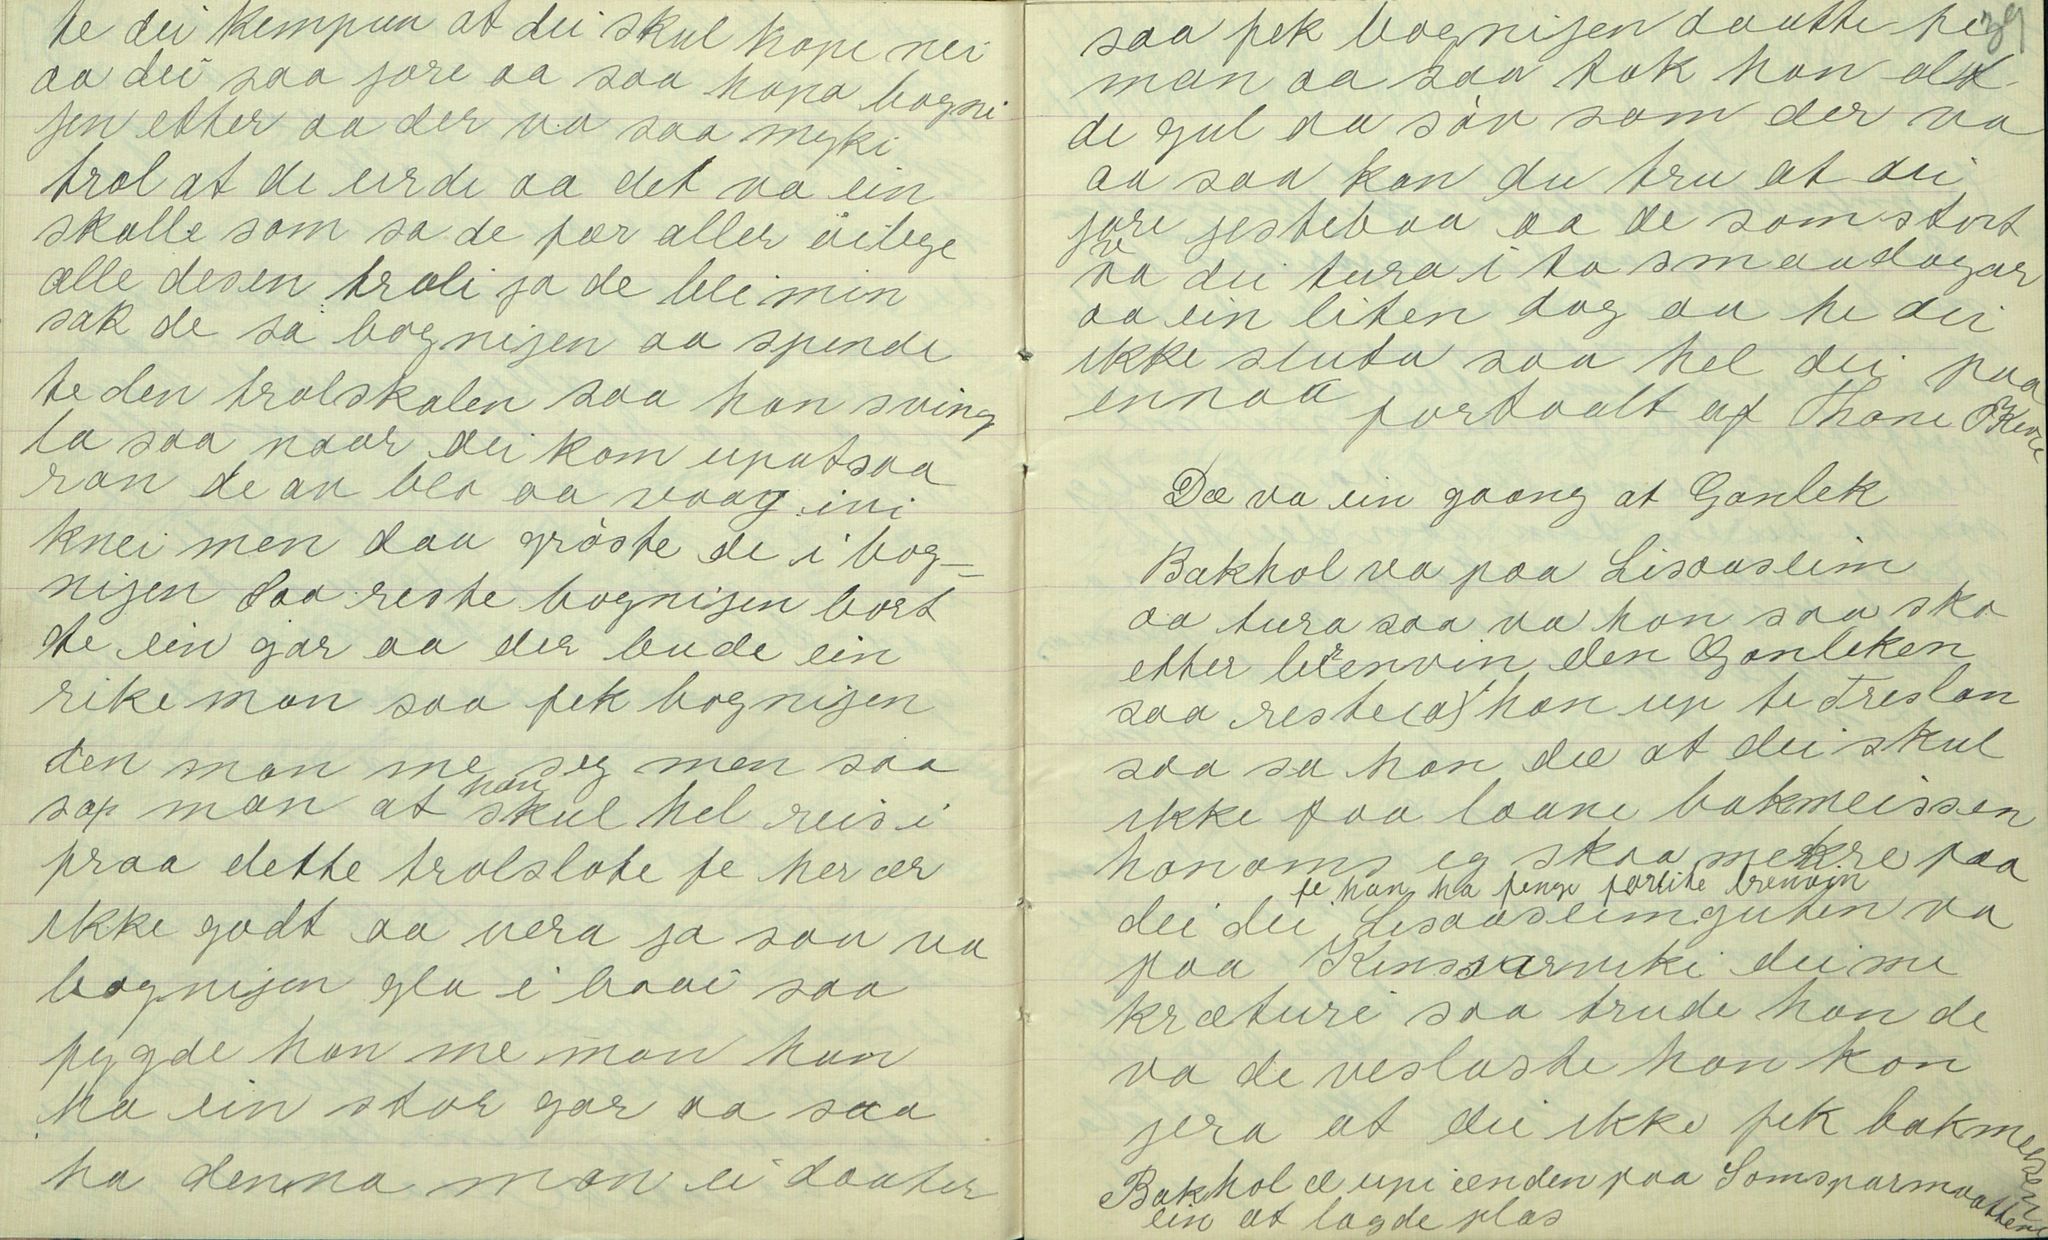 te dei kempun at dei skul hope nei
aa dei saa jore aa saa hopa bogni
jen etter aa der va saa myki
trol at de urde aa det va ein
skalle som sa de fær aller öilege
alle desen troli ja de blei min
sak de sa bognijen aa spende
te den trolskalen saa han sving
la saa naar dei kom uputsaa
ran de av blo aa vaag ini
knei men daa gröste de i bog-
nijen Saa reste bognijen bort
te ein gar aa der bude ein
rike man saa fek bognijen
den man me seg men saa
sap man at han skul hel reis i
fraa dette trolslote fe her ær
ikke godt aa vera ja saa va
bognijen gla i baai saa
fygde han me man han
ha ein stor gar aa saa
ha denna man ei daater
39
saa fek bognijen daatte he
man aa saa tok han alt
de gul aa söv som der va
aa saa kan du tru at dei
jore jestebaa aa de som stort
va dei tura i to smaadagar
aa ein liten dag aa he dei
ikke sluta saa hel dei paa
ennaa fortaalt af Thone
Dæ va ein gaang at Gonlek
Bakhol va paa Lisaasleim
aa tura saa va han saa ska
etter brenvin den Gonleken
saa reste han up te Treslan
saa sa han dæ at dei skul
ikke faa laane bakmeissen
honoms eg skaa mekre paa
fe han ha fenge forlite brenvin
dei dei Lisaasleimguten va
paa Kinsarviki dei me
kræturi saa trude han de
va de veslaste han kon
jera at dei ikke fek bakmeissen
Bakhol æ upi enden paa Somsparmoatten
ein at lagde plas